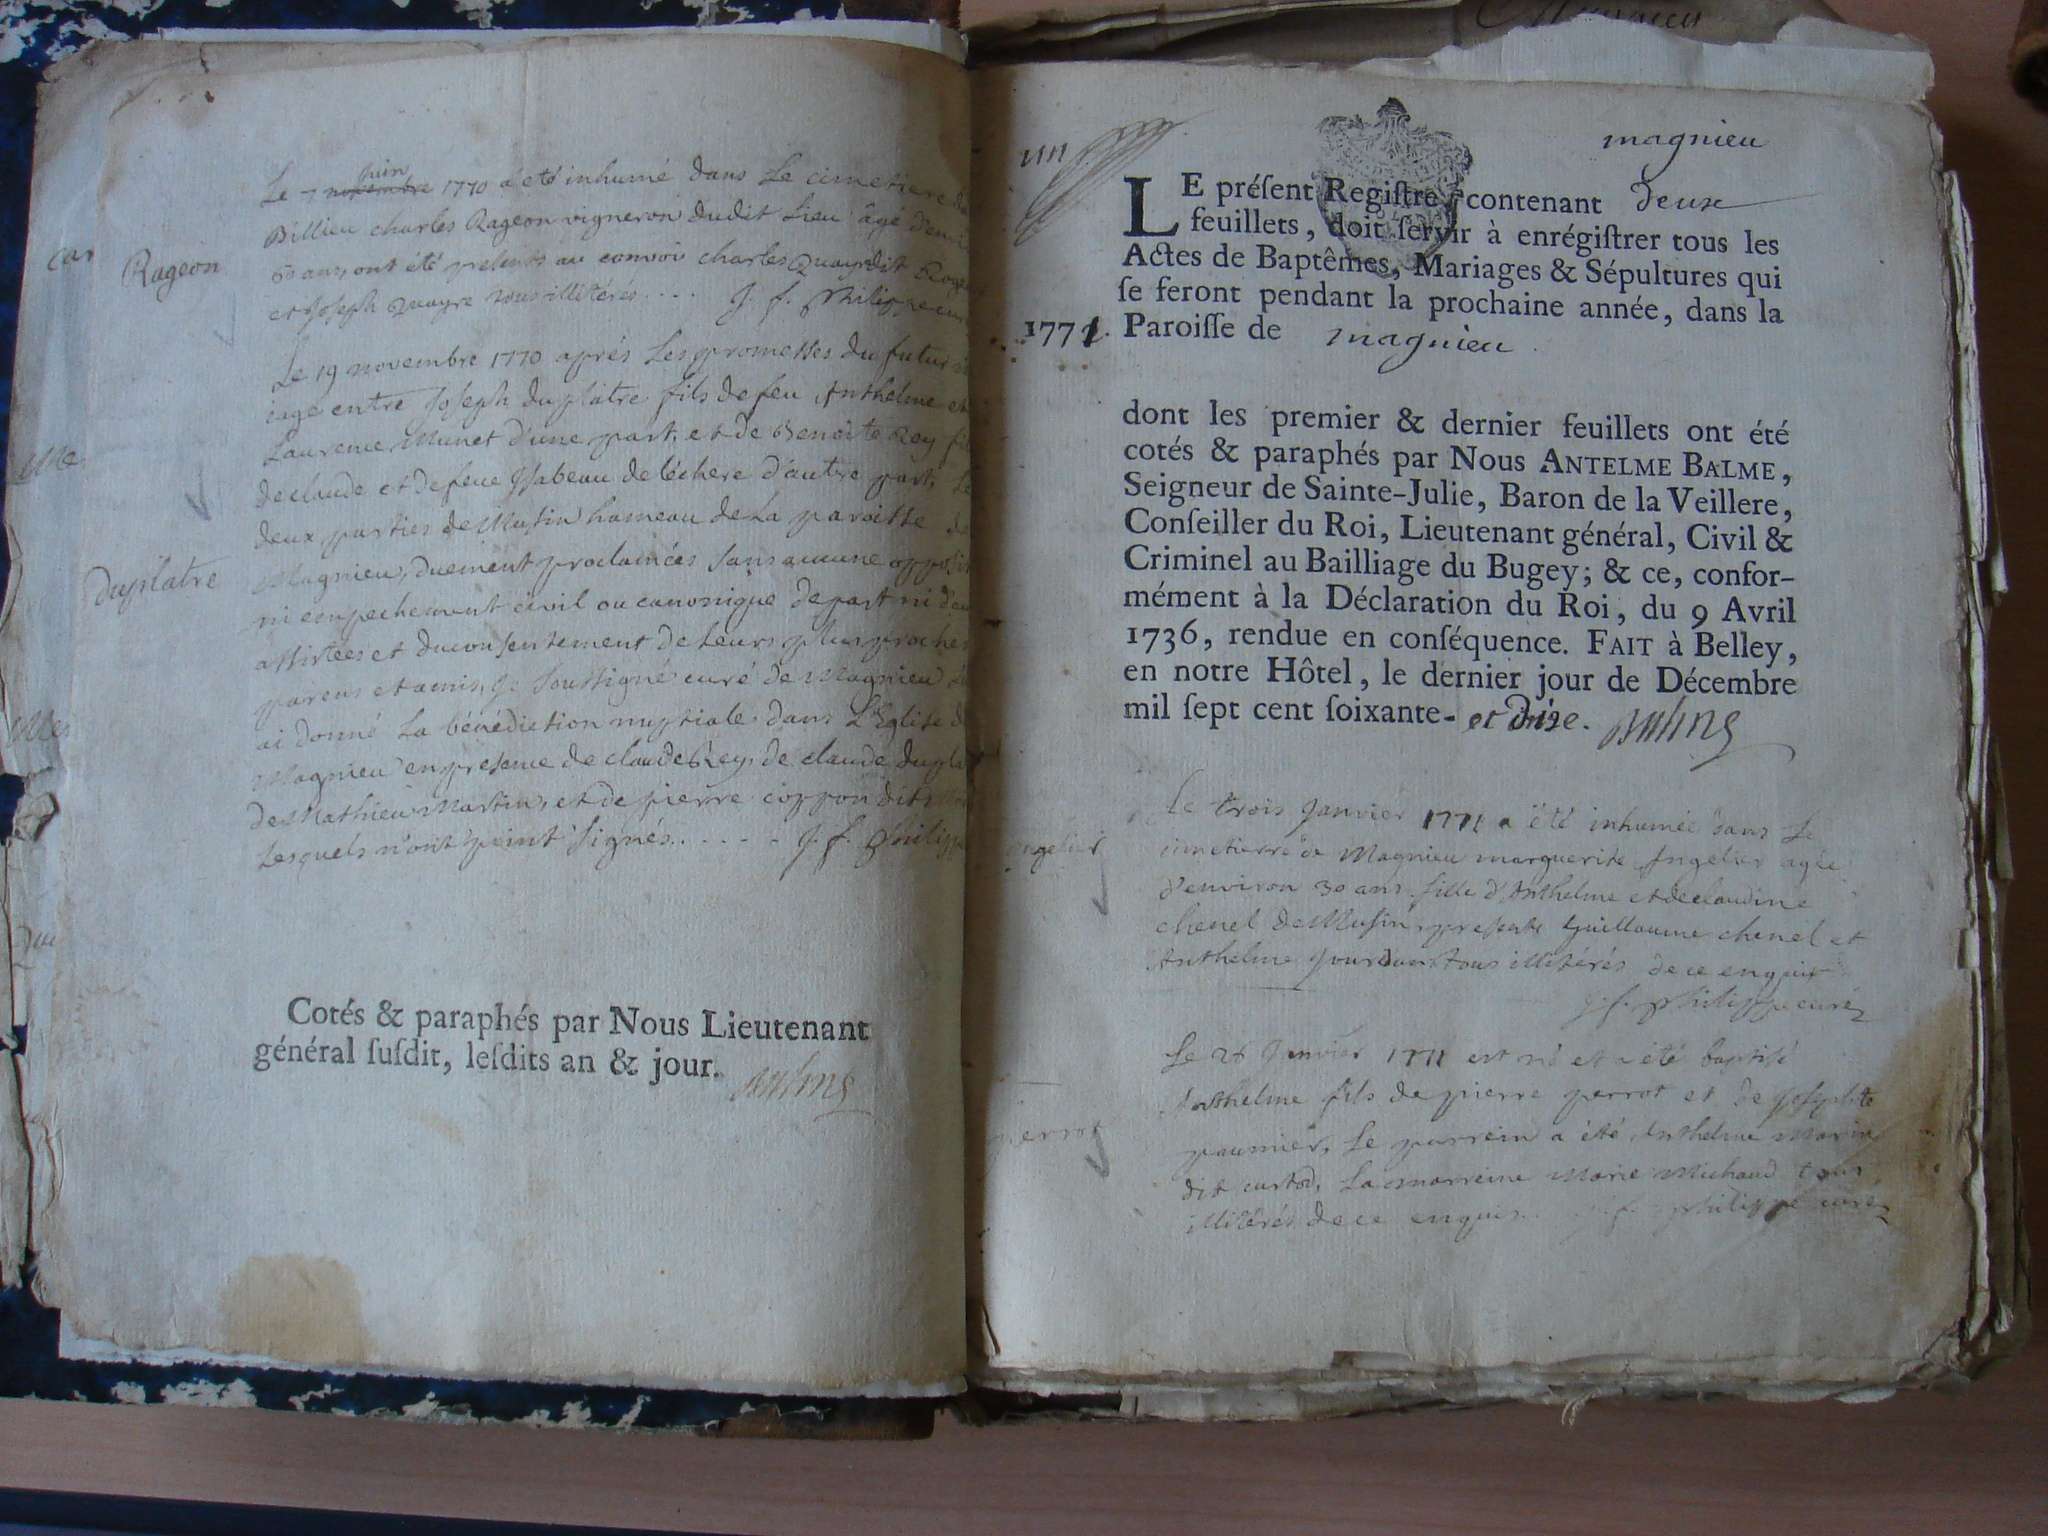 Le 7 novembre juin 1770 a eté inhumé dans Le cimetiere de
Billieu charles Rageon vigneron dudit Lieu âgé d'envi
60 ans, ont été presents au convoi charles Quayre dit Rage
et Joseph Quayre tous illitérés.... J. f. Philippe curé
Rageon
Le 19 novembre 1770 aprés Les promesses du futur
iage entre Joseph duplatre fils de feu Anthelme et
Laurence Munet d'une part, et de Benoite Rey fil
de claude et de feue Ysabeau de léchere d'autre part, Le
deux parties de Musin hameau de La paroisse de
Magnieu, duement proclamées sans aucune opposit
ni empechement civil ou canonique de part ni d'au
assistées et du consentement de Leurs plus proches
parens et amis, Je soussigné curé de Magnieu
ai donné La bénédiction nuptiale dans L'Eglise de
Magnieu en presence de claude Rey, de claude dupla
de Mathieu Martin, et de pierre coppon dit
Lesquels n'ont point signés...... J. f. Philippe
duplatre
Cotés & paraphés par Nous Lieutenant
général suſdit, leſdits an & jour.
Balme
magnieu
un
LE préſent Regiſtre contenant deux
feuillets, doit ſervir à enrégiſtrer tous les
Actes de Baptêmes, Mariages & Sépultures qui
ſe feront pendant la prochaine année, dans la
1771. Paroiſſe de magnieu
dont les premier & dernier feuillets ont été
cotés & paraphés par Nous ANTELME BALME,
Seigneur de Sainte-Julie, Baron de la Veillere,
Conſeiller du Roi, Lieutenant général, Civil &
Criminel au Bailliage du Bugey; & ce, confor-
mément à la Déclaration du Roi, du 9 Avril
1736, rendue en conſéquence. FAIT à Belley,
en notre Hôtel, le dernier jour de Décembre
mil ſept cent ſoixante- et dix. Balme
Le trois Janvier 1771 a été inhumée dans Le
cimetierre de Magnieu marguerite Jngelier agée
d'environ 30 ans fille d'Anthelme et de claudine
chenel de Musin, presents Guillaume chenel et
Anthelme Jourdan tous illitérés de ce enquis
J. f. philippe curé
Le 26 Janvier 1771 est né et a été baptisé
Anthelme fils de pierre perrot et de Josephte
paumier, Le parrein a été Anthelme Marin
dit curtod, La marreine Marie Michaud tous
illitérés de ce enquis... J. f. philippe curé
perrot